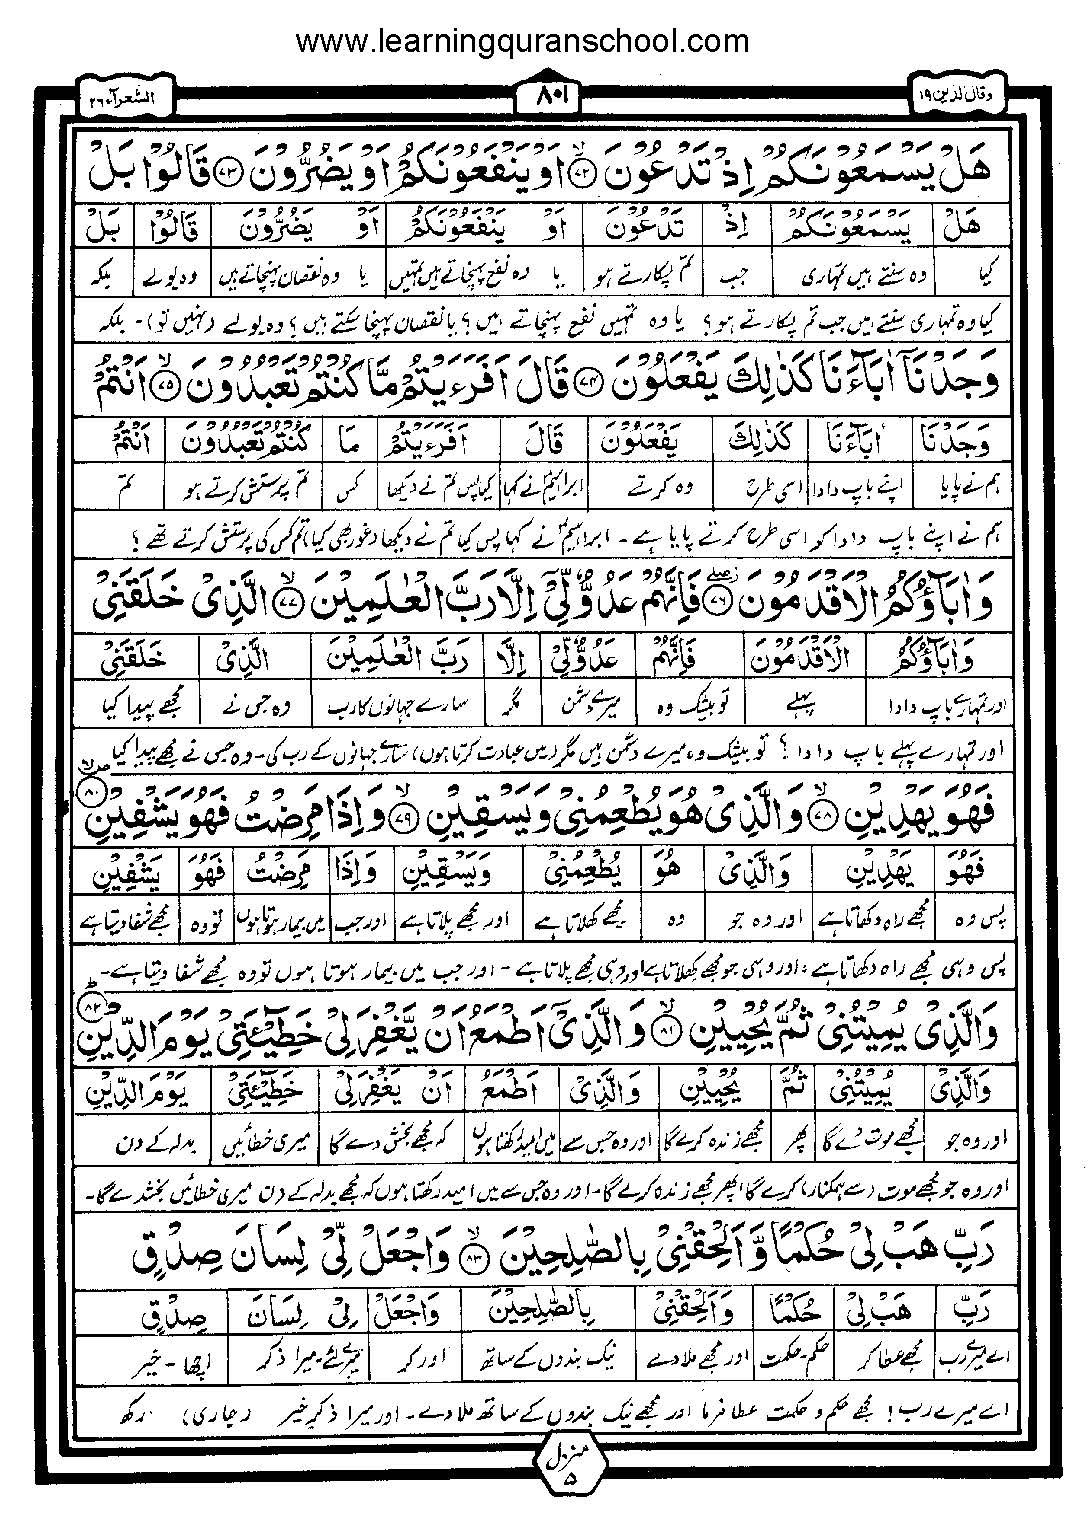 www.learningquranschool.com
وقال الذین ۱۹ ۸۰۱ الشعرآء ۲۶
هَلْ يَسْمَعُوْنَكُمْ اِذْ تَدْعُوْنَ ﴿۷۲﴾ اَوْ يَنْفَعُوْنَكُمْ اَوْ يَضُرُّوْنَ ﴿۷۳﴾ قَالُوْا بَلْ
هَلْ يَسْمَعُوْنَكُمْ اِذْ تَدْعُوْنَ اَوْ يَنْفَعُوْنَكُمْ اَوْ يَضُرُّوْنَ قَالُوْا بَلْ
کیا وہ سنتے ہیں تمہاری جب تم پکارتے ہو یا وہ نفع پہنچاتے ہیں تمہیں یا وہ نقصان پہنچاتے ہیں وہ بولے بلکہ
کیا وہ تمہاری سنتے ہیں جب تم پکارتے ہو؟ یا وہ تمہیں نفع پہنچاتے ہیں؟ یا نقصان پہنچا سکتے ہیں؟ وہ بولے (نہیں تو)۔ بلکہ
وَجَدْنَاۤ اٰبَآءَنَا كَذٰلِكَ يَفْعَلُوْنَ ﴿۷۴﴾ قَالَ اَفَرَءَيْتُمْ مَّا كُنْتُمْ تَعْبُدُوْنَ ﴿۷۵﴾ اَنْتُمْ
وَجَدْنَا اٰبَآءَنَا كَذٰلِكَ يَفْعَلُوْنَ قَالَ اَفَرَءَيْتُمْ مَا كُنْتُمْ تَعْبُدُوْنَ اَنْتُمْ
ہم نے پایا اپنے باپ دادا اسی طرح وہ کرتے ابراہیمؑ نے کہا کیا پس تم نے دیکھا کس تم پرستش کرتے ہو تم
ہم نے اپنے باپ دادا کو اسی طرح کرتے پایا ہے۔ ابراہیمؑ نے کہا پس کیا تم نے دیکھا (غور بھی کیا) تم کس کی پرستش کرتے تھے؟
وَاٰبَآؤُكُمُ الْاَقْدَمُوْنَ ﴿۷۶﴾ فَاِنَّهُمْ عَدُوٌّ لِّيْۤ اِلَّا رَبَّ الْعٰلَمِيْنَ ﴿۷۷﴾ الَّذِيْ خَلَقَنِيْ
وَاٰبَآؤُكُمُ الْاَقْدَمُوْنَ فَاِنَّهُمْ عَدُوٌّ لِّيْ اِلَّا رَبَّ الْعٰلَمِيْنَ الَّذِيْ خَلَقَنِيْ
اور تمہارے باپ دادا پہلے تو بیشک وہ میرے دشمن مگر سارے جہانوں کا رب وہ جس نے مجھے پیدا کیا
اور تمہارے پہلے باپ دادا؟ تو بیشک وہ میرے دشمن ہیں مگر (میں عبادت کرتا ہوں) سارے جہانوں کے رب کی۔ وہ جس نے مجھے پیدا کیا
فَهُوَ يَهْدِيْنِ ﴿۷۸﴾ وَالَّذِيْ هُوَ يُطْعِمُنِيْ وَيَسْقِيْنِ ﴿۷۹﴾ وَاِذَا مَرِضْتُ فَهُوَ يَشْفِيْنِ ﴿۸۰﴾
فَهُوَ يَهْدِيْنِ وَالَّذِيْ هُوَ يُطْعِمُنِيْ وَيَسْقِيْنِ وَاِذَا مَرِضْتُ فَهُوَ يَشْفِيْنِ
پس وہ مجھے راہ دکھاتا ہے اور وہ جو وہ مجھے کھلاتا ہے اور مجھے پلاتا ہے اور جب میں بیمار ہوتا ہوں تو وہ مجھے شفا دیتا ہے
پس وہی مجھے راہ دکھاتا ہے، اور وہی جو مجھے کھلاتا ہے اور وہی مجھے پلاتا ہے۔ اور جب میں بیمار ہوتا ہوں تو وہ مجھے شفا دیتا ہے۔
وَالَّذِيْ يُمِيْتُنِيْ ثُمَّ يُحْيِيْنِ ﴿۸۱﴾ وَالَّذِيْۤ اَطْمَعُ اَنْ يَّغْفِرَ لِيْ خَطِيْٓئَتِيْ يَوْمَ الدِّيْنِ ﴿۸۲﴾
وَالَّذِيْ يُمِيْتُنِيْ ثُمَّ يُحْيِيْنِ وَالَّذِيْ اَطْمَعُ اَنْ يَّغْفِرَ لِيْ خَطِيْٓئَتِيْ يَوْمَ الدِّيْنِ
اور وہ جو مجھے موت دے گا پھر مجھے زندہ کرے گا اور وہ جس سے میں امید رکھتا ہوں کہ مجھے بخش دے گا میری خطائیں بدلہ کے دن
اور وہ جو مجھے موت (سے ہمکنار) کرے گا، پھر مجھے زندہ کرے گا۔ اور وہ جس سے میں امید رکھتا ہوں کہ مجھے بدلہ کے دن میری خطائیں بخشدے گا۔
رَبِّ هَبْ لِيْ حُكْمًا وَّاَلْحِقْنِيْ بِالصّٰلِحِيْنَ ﴿۸۳﴾ وَاجْعَلْ لِّيْ لِسَانَ صِدْقٍ
رَبِّ هَبْ لِيْ حُكْمًا وَّاَلْحِقْنِيْ بِالصّٰلِحِيْنَ وَاجْعَلْ لِيْ لِسَانَ صِدْقٍ
اے میرے رب مجھے عطا کر حکم۔ حکمت اور مجھے ملا دے نیک بندوں کے ساتھ اور کر میرے لئے۔ میرا ذکر اچھا۔ خیر
اے میرے رب! مجھے حکم و حکمت عطا فرما اور مجھے نیک بندوں کے ساتھ ملا دے۔ اور میرا ذکر خیر (جاری) رکھ
منزل
۵